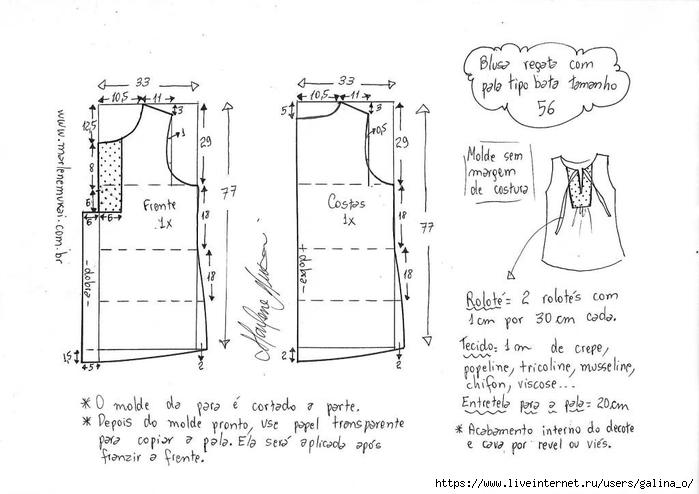 Blusa regata com
pala tipo bata tamanho
56
33
10,5 11
3
12,5
1
29
8
77
Frente
1x
6
6 6
18
18
dobra
1,5
5
2
www.marlenemukai.com.br
33
10,5 11
5
3
0,5
29
77
Costas
1x
18
dobra
18
2
2
Marlene Mukai
Molde sem
margem
de costura
Roloté = 2 rolotés com
1cm por 30cm cada.
Tecido = 1m de crepe,
popeline, tricoline, musseline,
chifon, viscose...
Entretela para a pala = 20cm
* Acabamento interno do decote
e cava por revel ou viés.
* O molde da para é cortado a parte.
* Depois do molde pronto, use papel transparente
para copiar a pala. Ela será aplicada após
franzir a frente.
https://www.liveinternet.ru/users/galina_o/